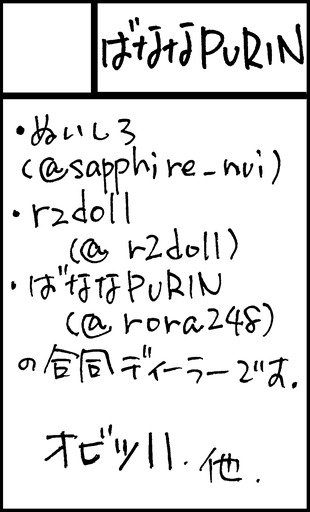 ばななPURIN
・ぬいしろ
(@sapphire_nui)
・r2doll
(@ r2doll)
・ばななPURIN
(@rora248)
の合同ディーラーです.
オビツ11.他.